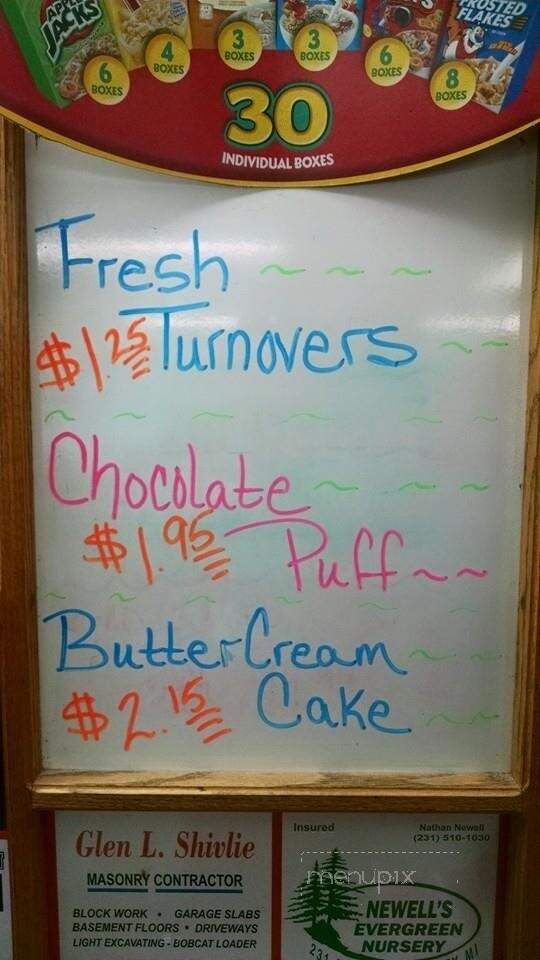 APPLE
JACKS
FROSTED
FLAKES
6
BOXES
4
BOXES
3
BOXES
3
BOXES
6
BOXES
8
BOXES
30
INDIVIDUAL BOXES
Fresh ~ ~ ~
$1.25 Turnovers ~ ~
Chocolate ~ ~ ~
$1.95 Puff ~ ~
ButterCream ~ ~
$2.15 Cake ~ ~
Glen L. Shivlie
MASONRY CONTRACTOR
BLOCK WORK • GARAGE SLABS
BASEMENT FLOORS • DRIVEWAYS
LIGHT EXCAVATING - BOBCAT LOADER
Insured
Nathan Newell
(231) 510-1030
menupix
NEWELL'S
EVERGREEN
NURSERY
231
MI